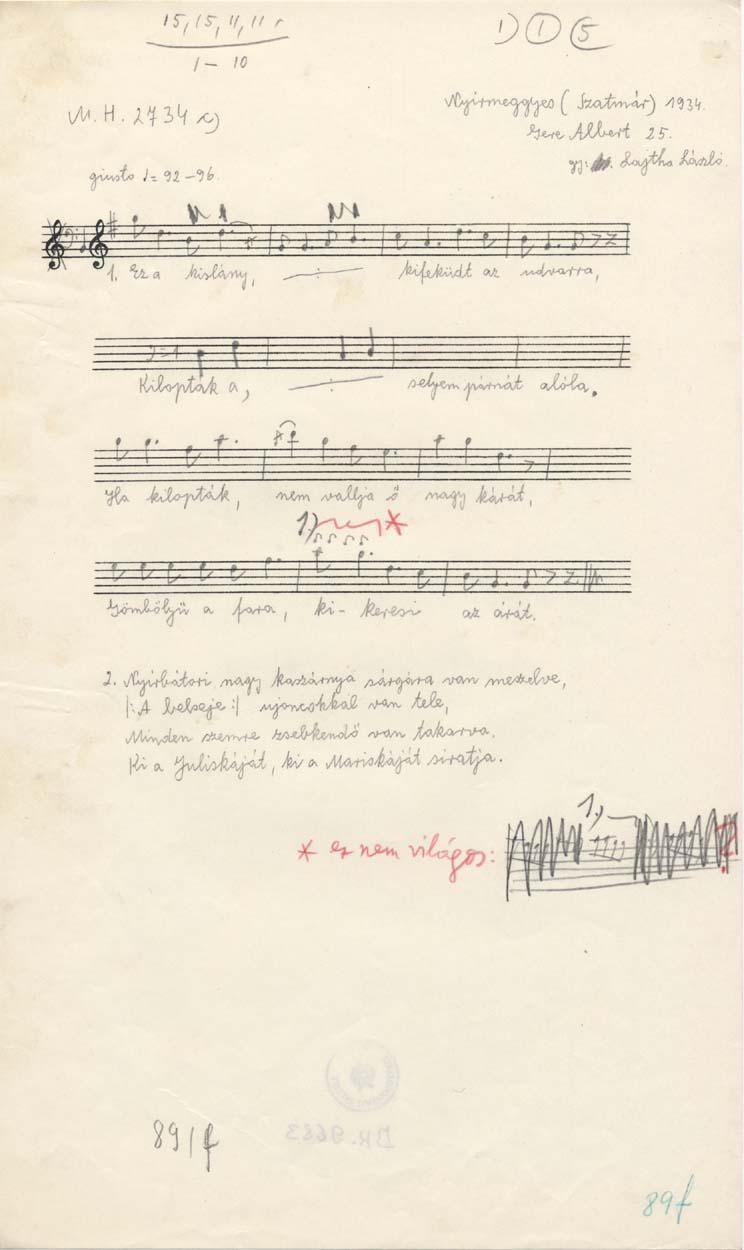 15, 15, 11, 11 r
1 - 10
1) 1 5
M.H. 2734 c)
Nyirmeggyes (Szatmár) 1934.
Gere Albert 25.
gy: Lajtha László.
giusto ♩= 92 – 96.
1. Ez a kislány, —:— kifeküdt az udvarra,
Kilopták a, —:— selyem párnát alóla.
Ha kilopták, nem vallja ő nagy kárát,
1.) *
Gömbölyű a fara, ki- keresi az árát.
2. Nyirbátori nagy kaszárnya sárgára van meszelve,
|: A belseje :| ujoncokkal van tele,
Minden szemre zsebkendő van takarva.
Ki a Juliskáját, ki a Mariskáját siratja.
1.)
* ez nem világos: ?
BR. 9663
89/f
89f